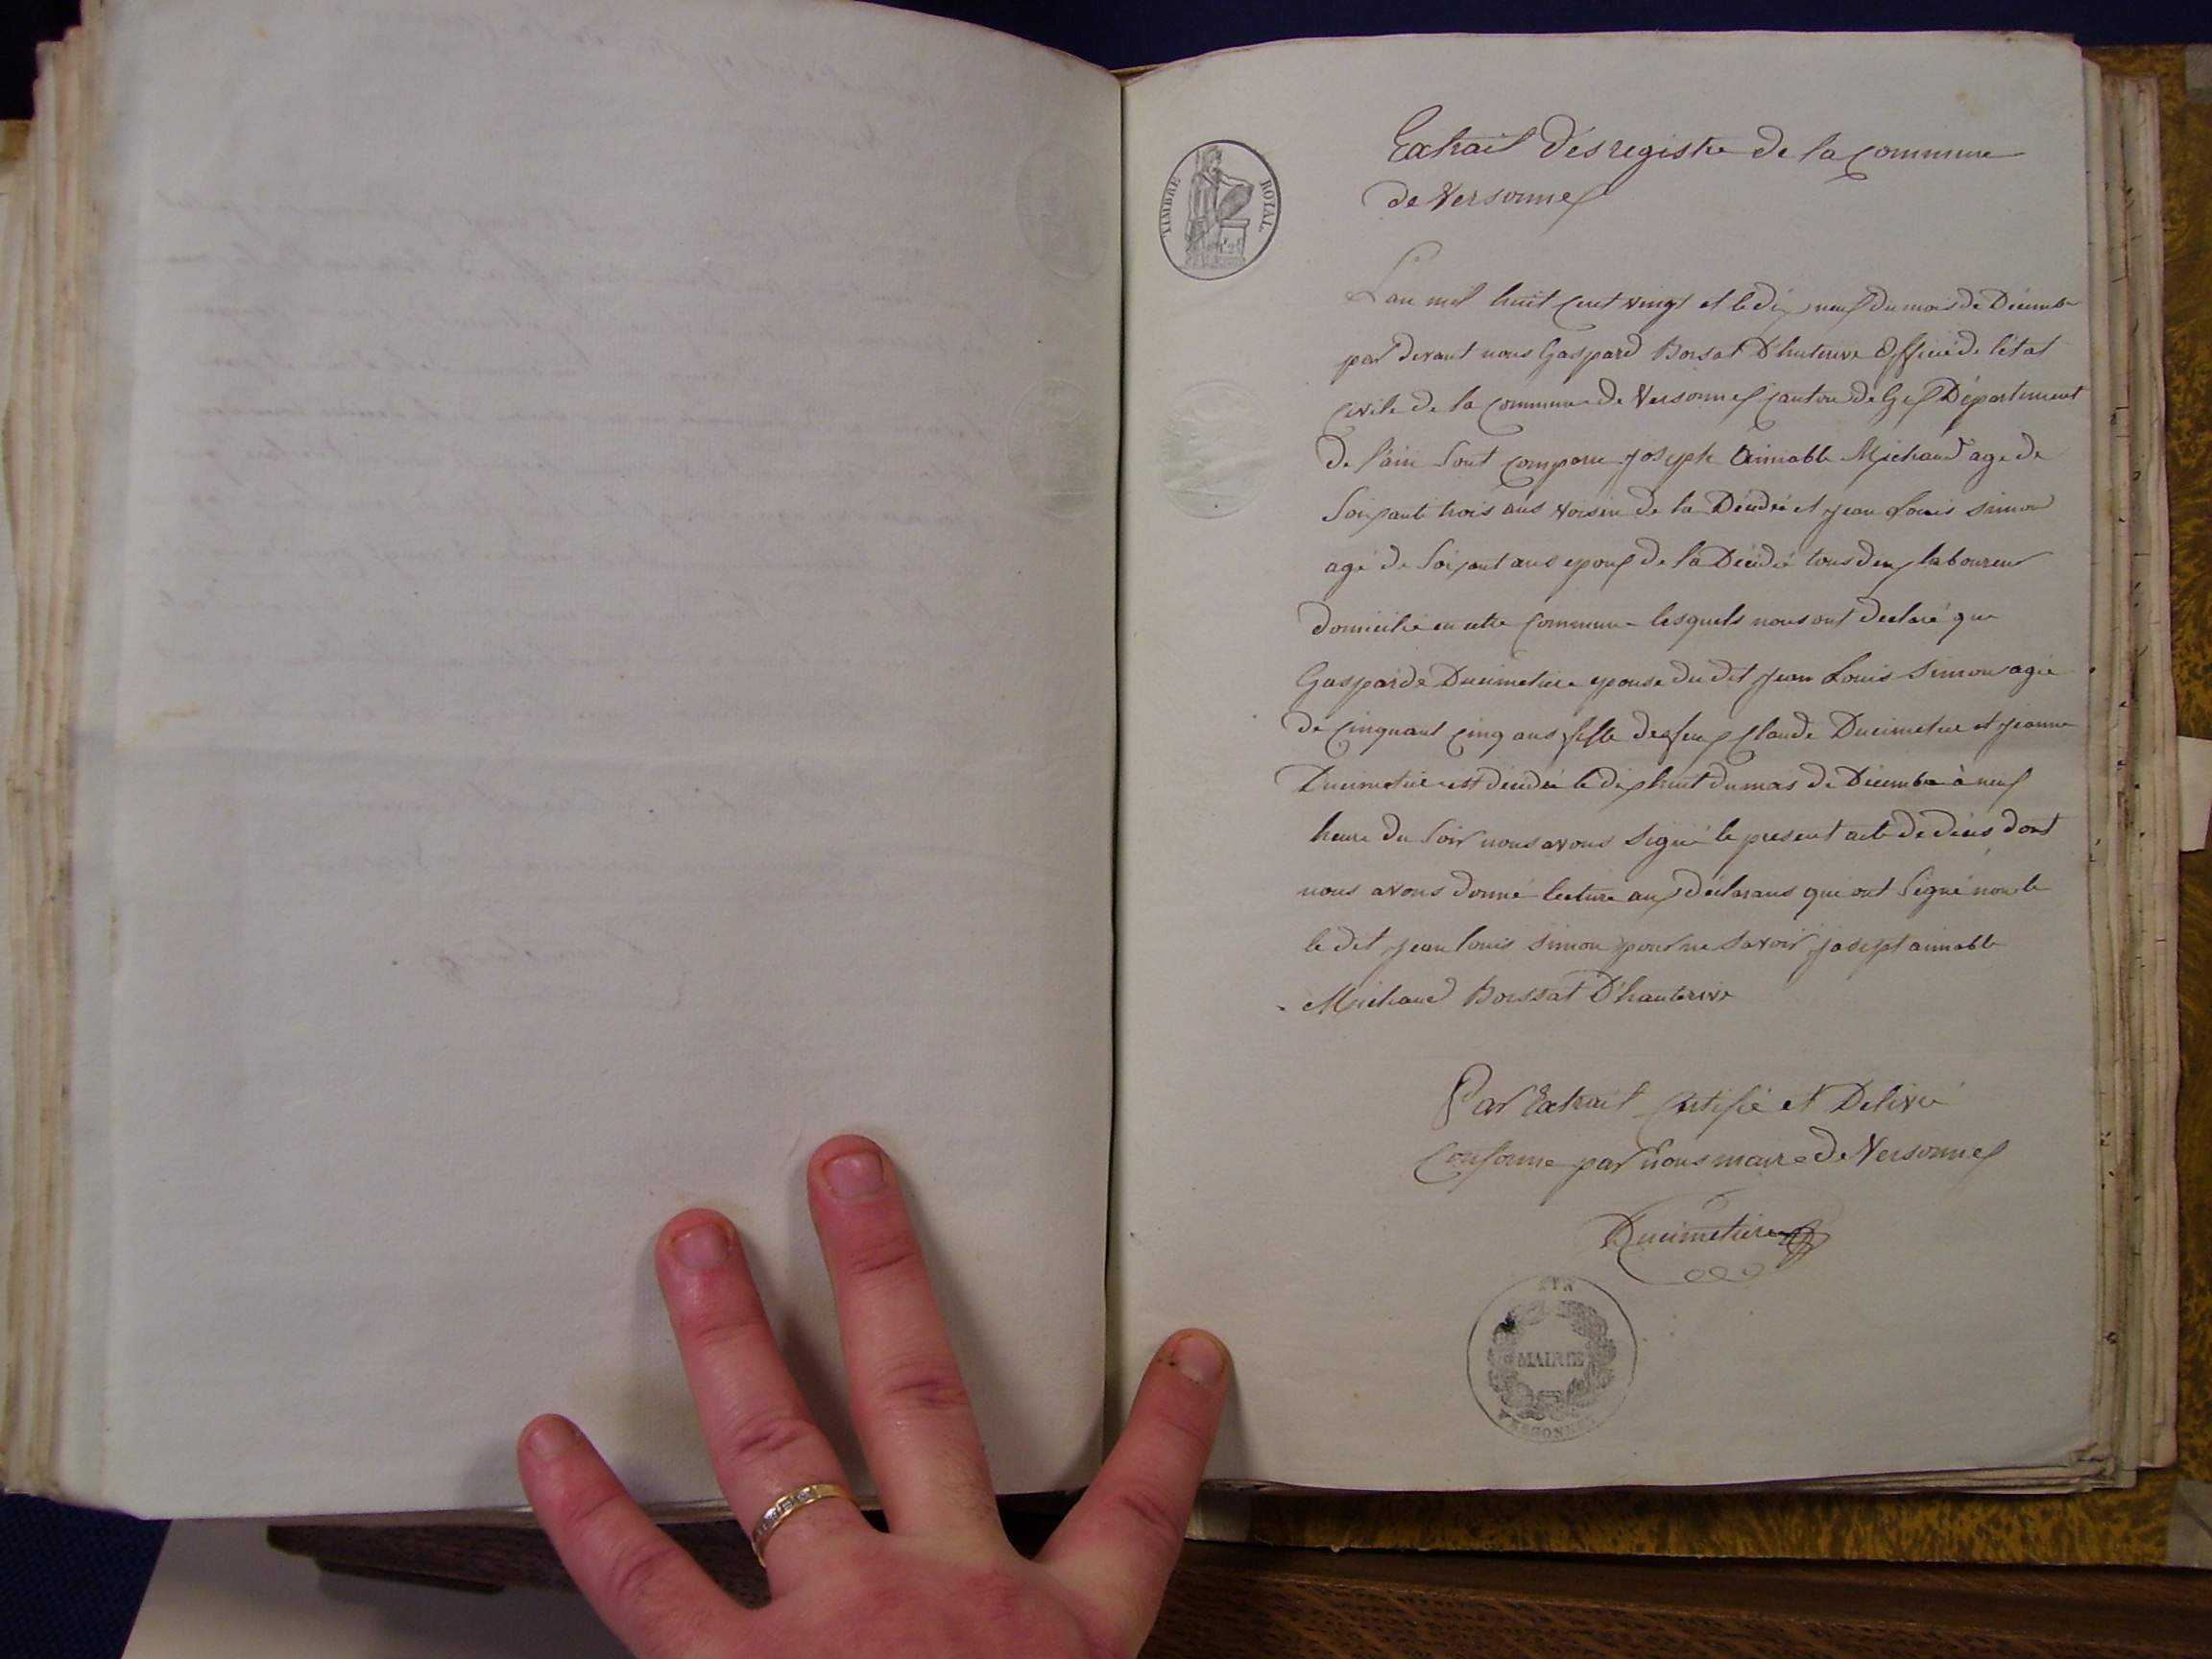 TIMBRE ROYAL
Extrait des registre de la commune
de Versonnex
L'an mil huit cent vingt et le dix neuf du mois de Décembre
par devant nous Gaspard Borsat D'hauterive Officié de l'état
Civile de la Commune de Versonnex Canton de Gex Département
de l'ain Sont comparu Joseph Aimable Michaud age de
Soixante trois ans voisin de la Décédée et Jean Louis Simon
agé de Soixant ans epoux de la Décédé tous deux laboureur
domicilié en cette Commune lesquels nous ont declaré que
Gasparde Ducimetiere epouse du dit Jean Louis Simon agée
de Cinquant cinq ans fille des feux Claude Ducimetiere et Jeanne
Ducimetiere est décédée le dix huit du mois de Décembre à neuf
heure du Soir nous avons Signé le present acte de décès dont
nous avons donné lecture aux déclarans qui ont Signé non le
le dit Jean louis Simon pour ne Savoir Josept aimable
Michaud Borssat D'hauterive
Par Extrait Certifié et Delivré
Conforme par nous maire de Versonnex
Ducimetiere
MAIRIE
VERSONNEX